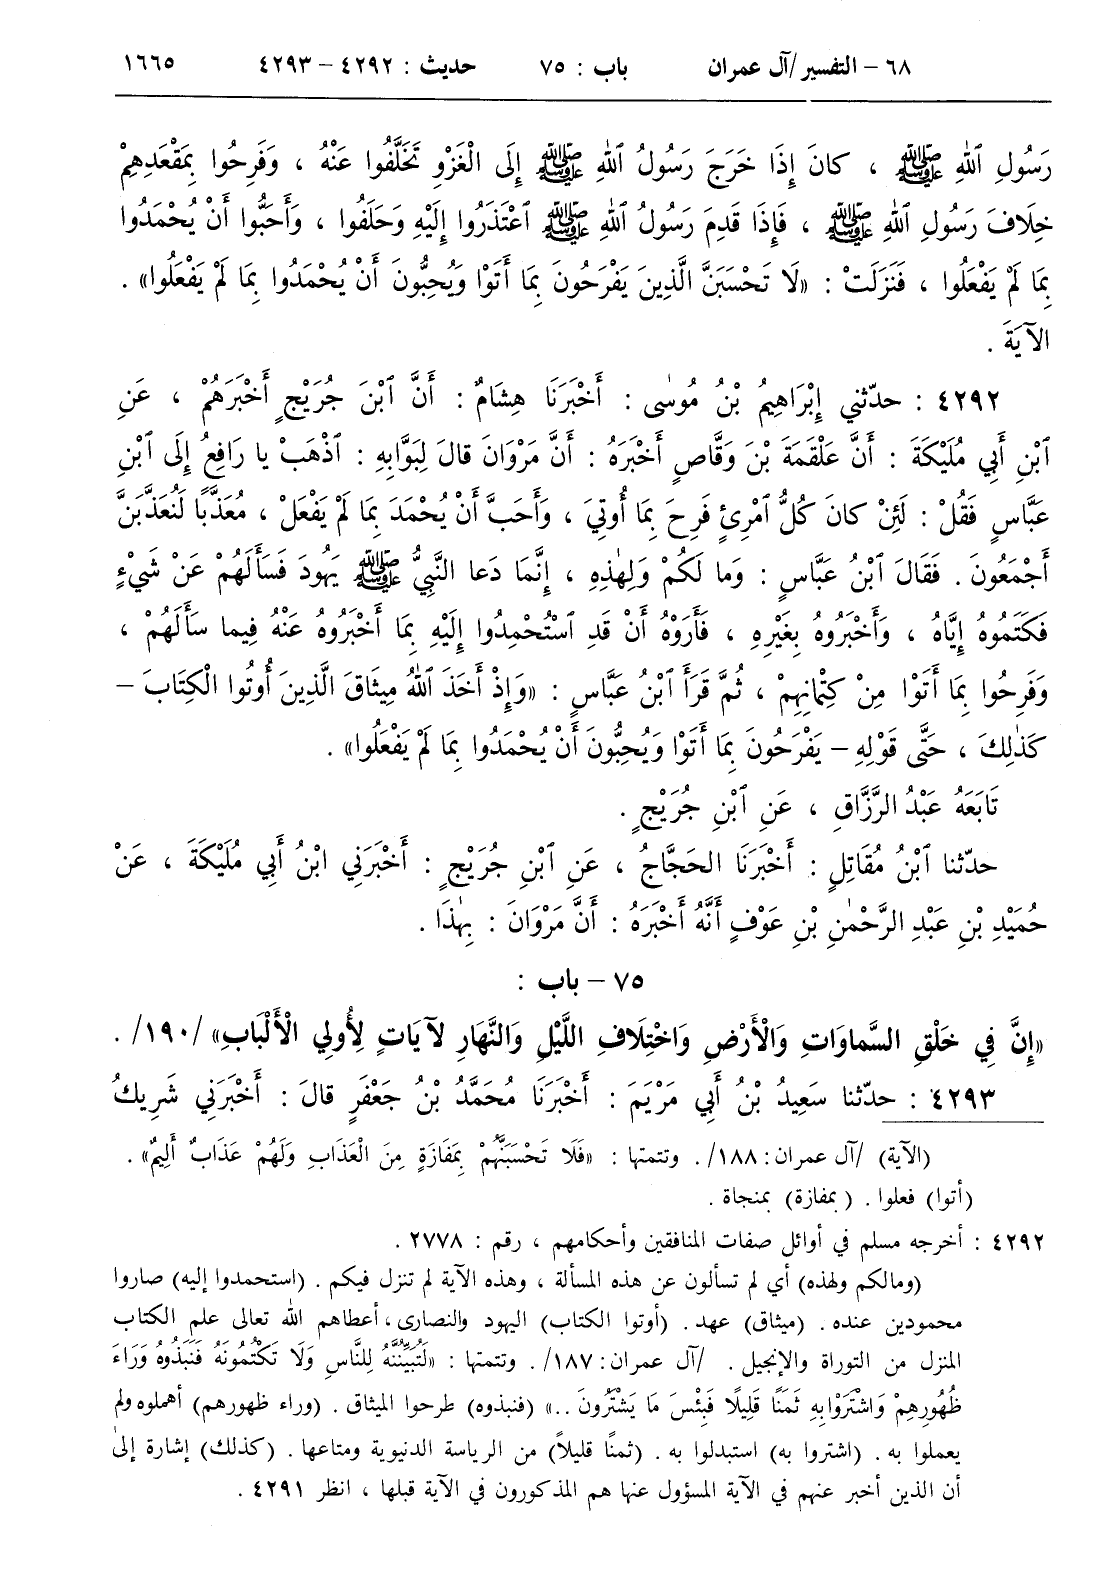 ٦٨ – التفسير/آل عمران باب : ٧٥ حديث : ٤٢٩٢ – ٤٢٩٣ ١٦٦٥
رَسُولِ ٱللهِ ﷺ ، كانَ إِذَا خَرَجَ رَسُولُ ٱللهِ ﷺ إِلَى الْغَزْوِ تَخَلَّفُوا عَنْهُ ، وَفَرِحُوا بِمَقْعَدِهِمْ
خِلَافَ رَسُولِ ٱللهِ ﷺ ، فَإِذَا قَدِمَ رَسُولُ ٱللهِ ﷺ ٱعْتَذَرُوا إِلَيْهِ وَحَلَفُوا ، وَأَحَبُّوا أَنْ يُحْمَدُوا
بِمَا لَمْ يَفْعَلُوا ، فَنَزَلَتْ : «لَا تَحْسَبَنَّ الَّذِينَ يَفْرَحُونَ بِمَا أَتَوْا وَيُحِبُّونَ أَنْ يُحْمَدُوا بِمَا لَمْ يَفْعَلُوا» .
الآيَةَ .
٤٢٩٢ : حدّثني إِبْرَاهِيمُ بْنُ مُوسٰى : أَخْبَرَنَا هِشَامٌ : أَنَّ ٱبْنَ جُرَيْجٍ أَخْبَرَهُمْ ، عَنِ
ٱبْنِ أَبِي مُلَيْكَةَ : أَنَّ عَلْقَمَةَ بْنَ وَقَّاصٍ أَخْبَرَهُ : أَنَّ مَرْوَانَ قالَ لِبَوَّابِهِ : ٱذْهَبْ يا رَافِعُ إِلَى ٱبْنِ
عَبَّاسٍ فَقُلْ : لَئِنْ كانَ كُلُّ ٱمْرِئٍ فَرِحَ بِمَا أُوتِيَ ، وَأَحَبَّ أَنْ يُحْمَدَ بِمَا لَمْ يَفْعَلْ ، مُعَذَّبًا لَنُعَذَّبَنَّ
أَجْمَعُونَ . فَقَالَ ٱبْنُ عَبَّاسٍ : وَما لَكُمْ وَلِهٰذِهِ ، إِنَّمَا دَعا النَّبِيُّ ﷺ يَهُودَ فَسَأَلَهُمْ عَنْ شَيْءٍ
فَكَتَمُوهُ إِيَّاهُ ، وَأَخْبَرُوهُ بِغَيْرِهِ ، فَأَرَوْهُ أَنْ قَدِ ٱسْتُحْمِدُوا إِلَيْهِ بِمَا أَخْبَرُوهُ عَنْهُ فِيما سَأَلَهُمْ ،
وَفَرِحُوا بِمَا أَتَوْا مِنْ كِتْمانِهِمْ ، ثُمَّ قَرَأَ ٱبْنُ عَبَّاسٍ : «وَإِذْ أَخَذَ ٱللهُ مِيثَاقَ الَّذِينَ أُوتُوا الْكِتَابَ –
كَذٰلِكَ ، حَتَّى قَوْلِهِ – يَفْرَحُونَ بِمَا أَتَوْا وَيُحِبُّونَ أَنْ يُحْمَدُوا بِمَا لَمْ يَفْعَلُوا» .
تَابَعَهُ عَبْدُ الرَّزَّاقِ ، عَنِ ٱبْنِ جُرَيْجٍ .
حدّثنا ٱبْنُ مُقَاتِلٍ : أَخْبَرَنَا الحَجَّاجُ ، عَنِ ٱبْنِ جُرَيْجٍ : أَخْبَرَنِي ابْنُ أَبِي مُلَيْكَةَ ، عَنْ
حُمَيْدِ بْنِ عَبْدِ الرَّحْمٰنِ بْنِ عَوْفٍ أَنَّهُ أَخْبَرَهُ : أَنَّ مَرْوَانَ : بِهٰذَا .
٧٥ – باب :
«إِنَّ فِي خَلْقِ السَّماوَاتِ وَالْأَرْضِ وَاخْتِلَافِ اللَّيْلِ وَالنَّهَارِ لآيَاتٍ لِأُولِي الْأَلْبَابِ» /١٩٠/ .
٤٢٩٣ : حدّثنا سَعِيدُ بْنُ أَبِي مَرْيَمَ : أَخْبَرَنَا مُحَمَّدُ بْنُ جَعْفَرٍ قالَ : أَخْبَرَنِي شَرِيكُ
(الآية) /آل عمران: ١٨٨/ . وتتمتها : «فَلَا تَحْسَبَنَّهُمْ بِمَفَازَةٍ مِنَ الْعَذَابِ وَلَهُمْ عَذَابٌ أَلِيمٌ» .
(أتوا) فعلوا . (بمفازة) بمنجاة .
٤٢٩٢ : أخرجه مسلم في أوائل صفات المنافقين وأحكامهم ، رقم : ٢٧٧٨ .
(ومالكم ولهذه) أي لم تسألون عن هذه المسألة ، وهذه الآية لم تنزل فيكم . (استحمدوا إليه) صاروا
محمودين عنده . (ميثاق) عهد . (أوتوا الكتاب) اليهود والنصارى ، أعطاهم الله تعالى علم الكتاب
المنزل من التوراة والإنجيل . /آل عمران: ١٨٧/ . وتتمتها : «لَتُبَيِّنُنَّهُ لِلنَّاسِ وَلَا تَكْتُمُونَهُ فَنَبَذُوهُ وَرَاءَ
ظُهُورِهِمْ وَاشْتَرَوْا بِهِ ثَمَنًا قَلِيلًا فَبِئْسَ مَا يَشْتَرُونَ ..» (فنبذوه) طرحوا الميثاق . (وراء ظهورهم) أهملوه ولم
يعملوا به . (اشتروا به) استبدلوا به . (ثمنًا قليلاً) من الرياسة الدنيوية ومتاعها . (كذلك) إشارة إلى
أن الذين أخبر عنهم في الآية المسؤول عنها هم المذكورون في الآية قبلها ، انظر ٤٢٩١ .